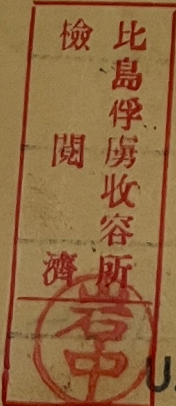 比島俘虜收容所
檢閲濟
岩中
U.